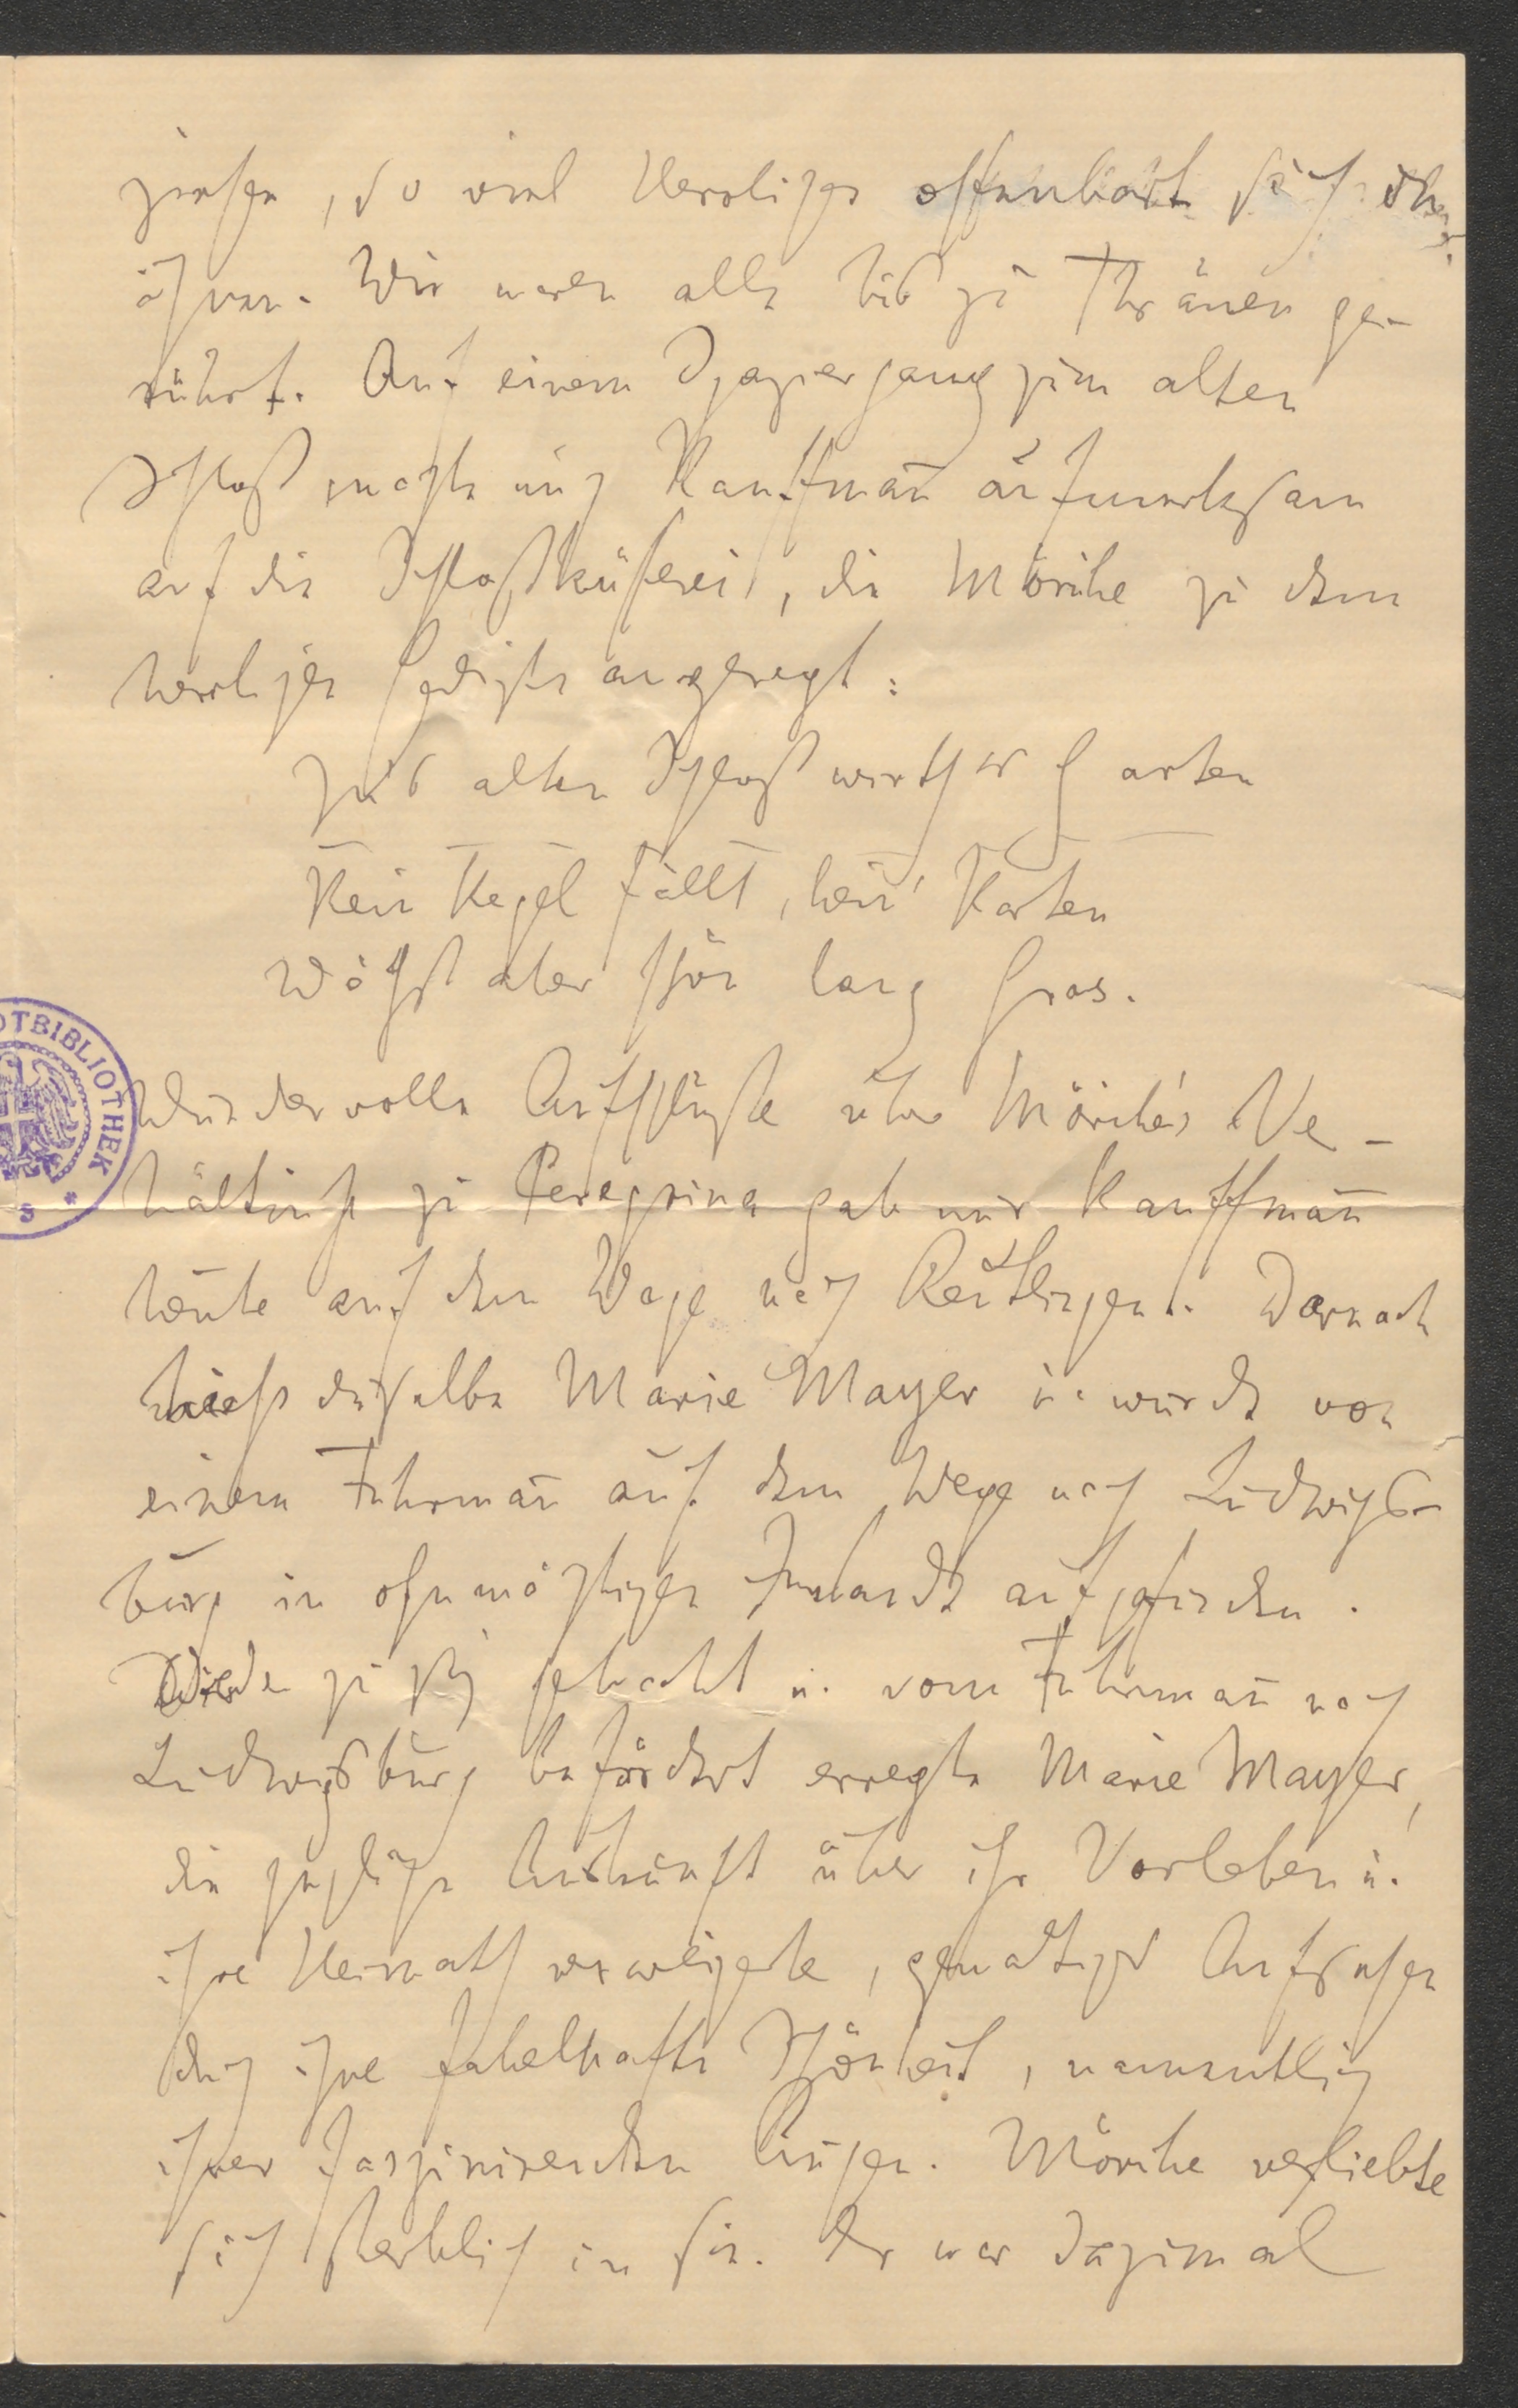 ziehen, so viel Herrliches offenbart sich
ihnen. Wir waren alle bis zu Thränen ge-
rührt. Auf einem Spaziergang zum alten
Schloß machte uns Kauffmañ aufmerksam
auf die Schloßküferei, die Mörike zu dem
herrlichen Gedichte angeregt:
Ins alten Schloßwirths Garten
Kein Kegel fällt, kein' Karten
Wächst aber schön lang Gras.
Wundervolle Aufschlüsse über Mörike's Ve-
hältniss zu Peregrina gab mir Kauffmañ
heute auf dem Wege nach Reutlingen. Darnach
hiess dieselbe Marie Mayer u. wurde von
einem Fuhrmañ auf dem Wege nach Ludwigs-
burg in ohnmächtigem Zustande aufgefunden.
Wieder zu sich gebracht u. vom Fuhrmañ nach
Ludwigsburg befördert erregte Marie Mayer,
die jegliche Auskunft über ihr Vorleben u.
ihre Heimath verweigerte, gewaltiges Aufsehen
durch ihre fabelhafte Schönheit, namentlich
ihrer faszinirenden Augen. Mörike verliebte
sich sterblich in sie. Er war dazumal
OTBIBLIOTHEK
S *